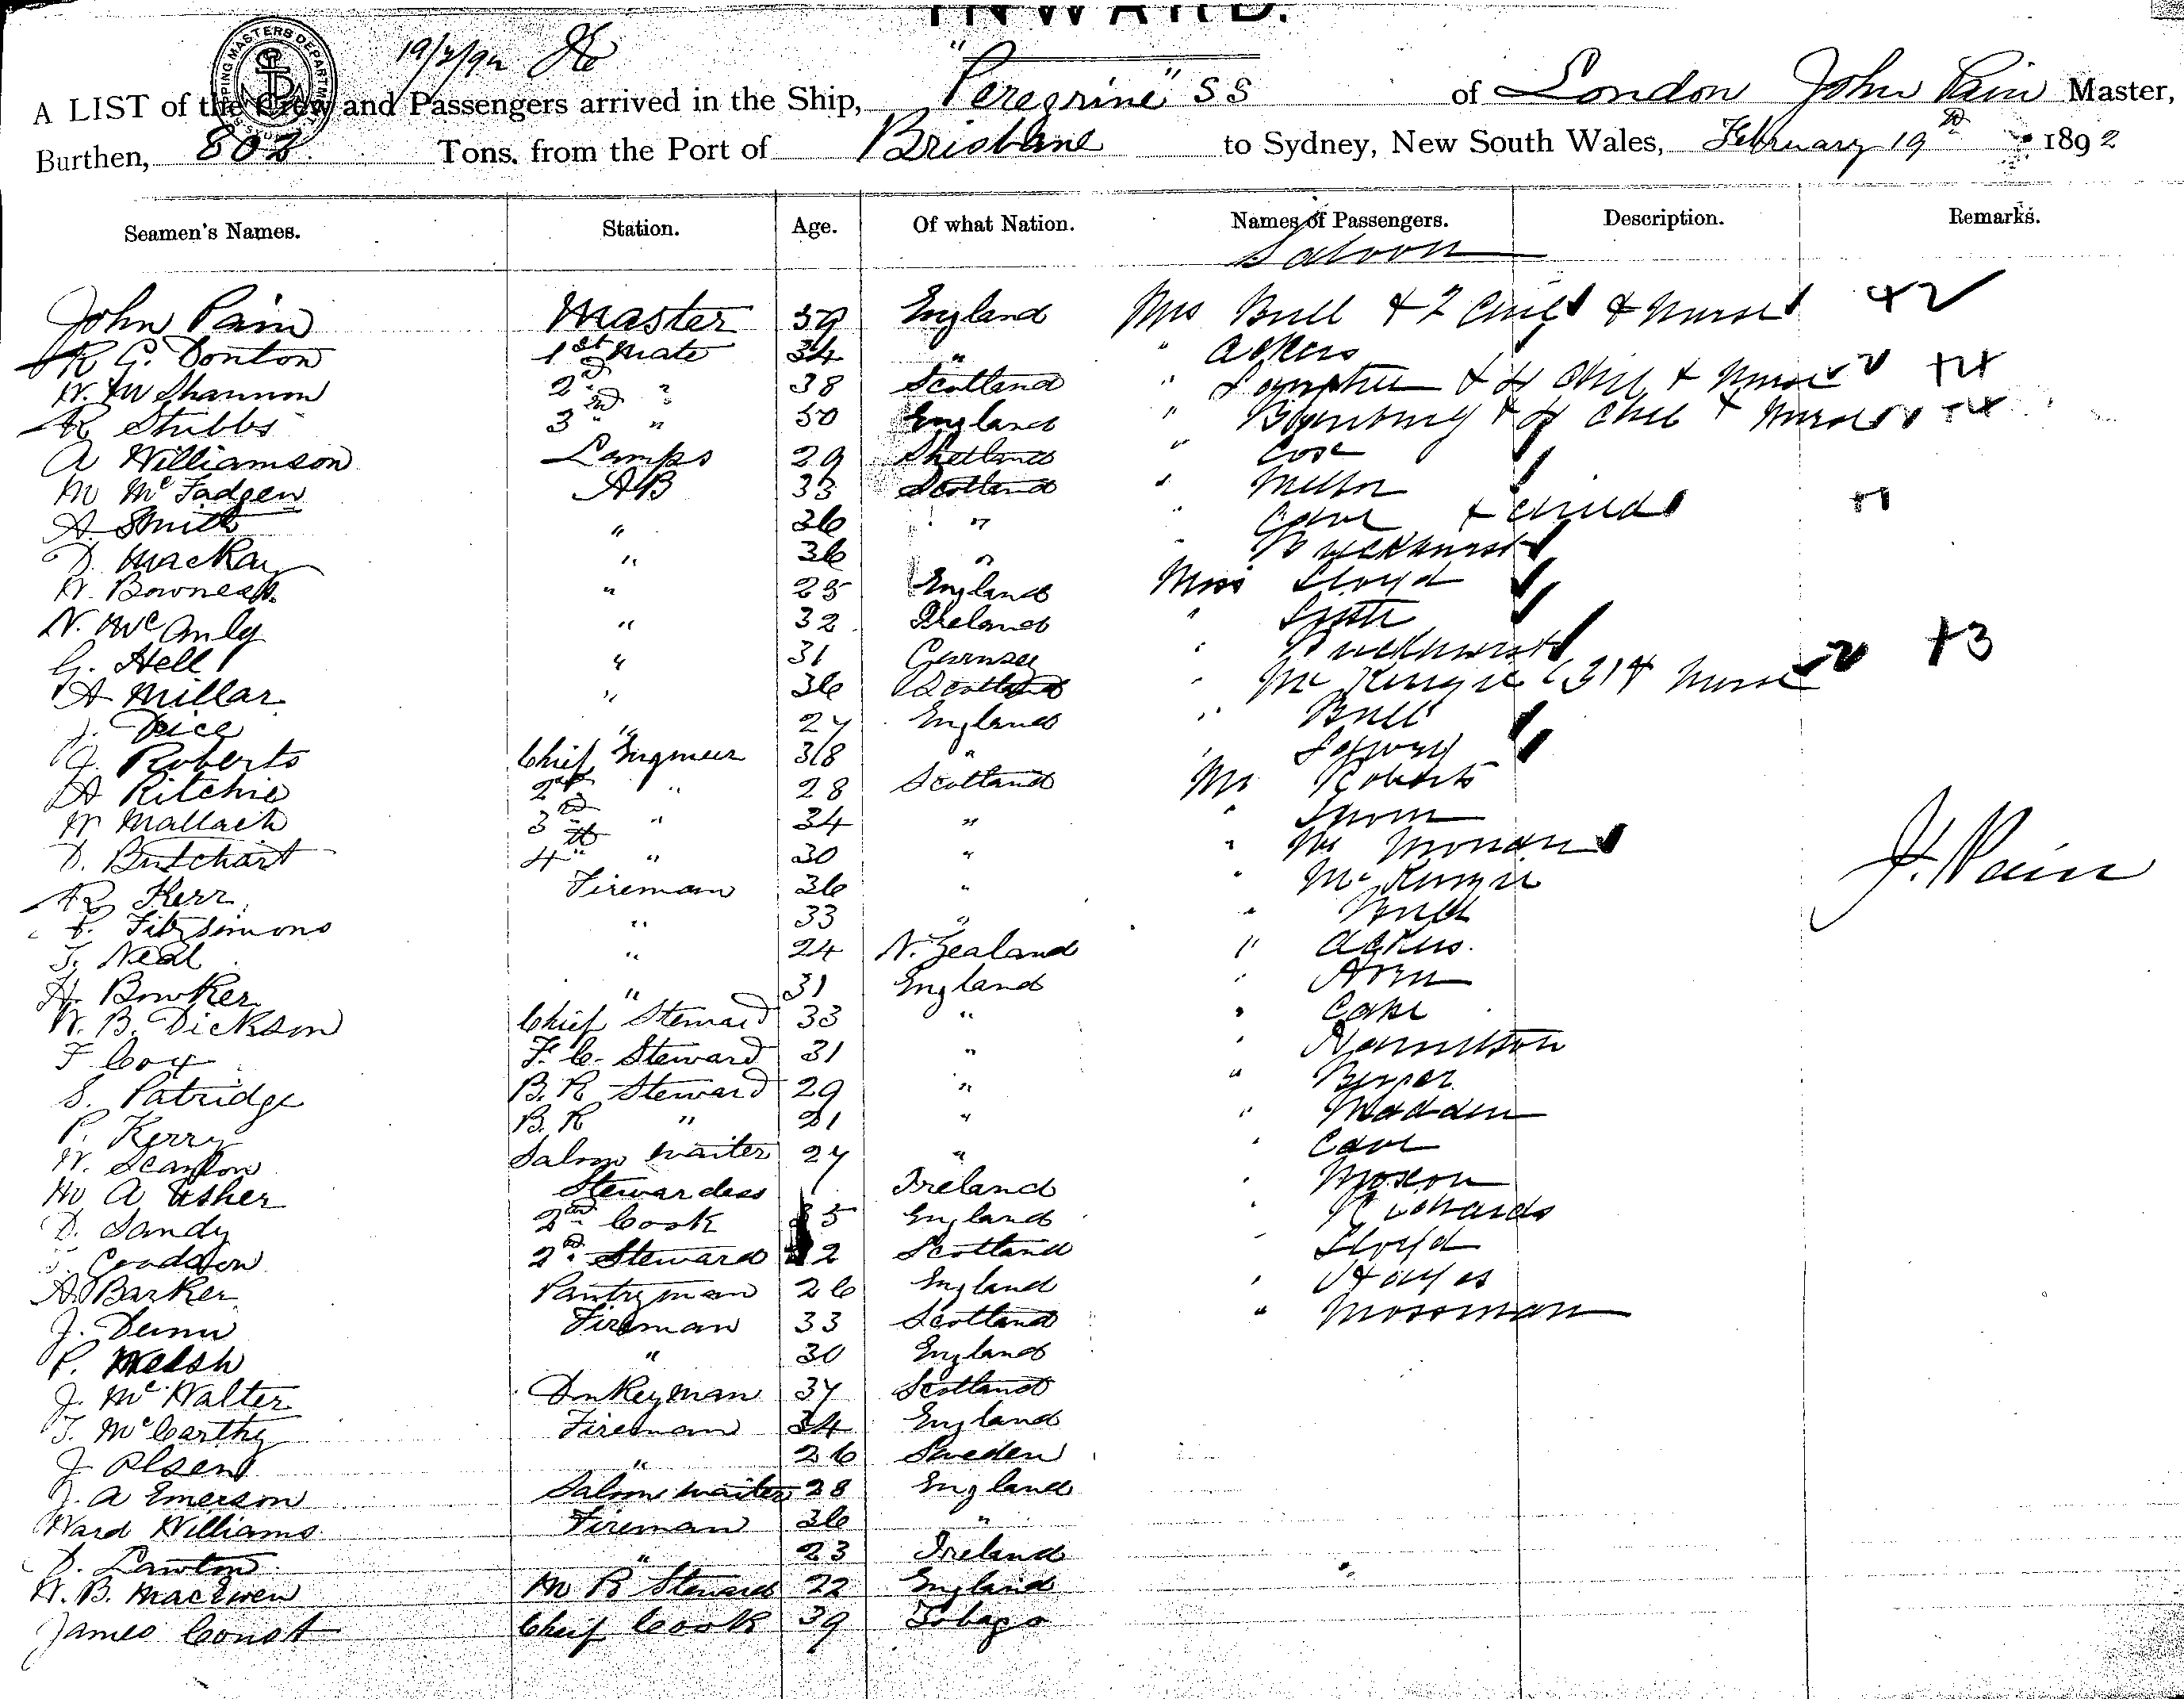 INWARD.
19/2/92
A LIST of the Crew and Passengers arrived in the Ship, "Peregrine" SS of London John Pain Master,
Burthen, 802 Tons, from the Port of Brisbane to Sydney, New South Wales, February 19th 1892
Seamen's Names. Station. Age. Of what Nation. Names of Passengers. Description. Remarks.
Saloon
John Pain Master 59 England Mrs Bull & 2 Child & Nurse +2
R G. Donton 1st Mate 34 " " Ackers
W. McShannon 2nd " 38 Scotland " & 4 Chil & Nurse +4
R Stubbs 3rd " 50 England " & 4 Chil & Nurse +4
A Williamson Lamps 29 Shetland "
M McFadgen AB 33 Scotland " Mellor
A. Smith " 36 " " & child +1
D. Mackay " 36 " " Buckhurst
W. Bowness " 25 England Miss Lloyd
N. McAnly " 32 Ireland "
G. Hell " 31 Gurnsey " Buckhurst
A Millar " 36 Scotland " McKenzie (3) & Nurse +3
J. Price " 27 England " Bull
J. Roberts Chief Engineer 38 " "
A Ritchie 2nd " 28 Scotland Mr Roberts
W Mallach 3rd " 34 " "
D. Butchart 4th " 30 " "
R Kerr Fireman 36 " " McKenzie
Fitzsimons " 33 " " Bull
T. Neal " 24 N. Zealand " Ackers.
H. Bowker " 31 England "
W. B. Dickson Chief Steward 33 " "
F Cox F. C. Steward 31 " " Hamilton
S. Patridge B. R Steward 29 " "
P. Kerry B. R " 21 " " Madden
W. Scanlon Saloon Waiter 27 " "
M A Usher Stewardess Ireland " Moxon
D. Sandy 2nd Cook 35 England " Richards
Coaddon 2nd Steward 22 Scotland " Lloyd
A Barker Pantryman 26 England " Hayes
J. Dunn Fireman 33 Scotland " Mossman
P. Welsh " 30 England
J. McWalter Donkeyman 37 Scotland
T. McCarthy Fireman 34 England
J Olsen " 26 Sweden
J. A Emerson Saloon Waiter 28 England
Ward Williams Fireman 36 "
D. Lawton " 23 Ireland
W. B. MacEwen M R Steward 22 England
James Const Chief Cook 39 Tobago
J. Pain